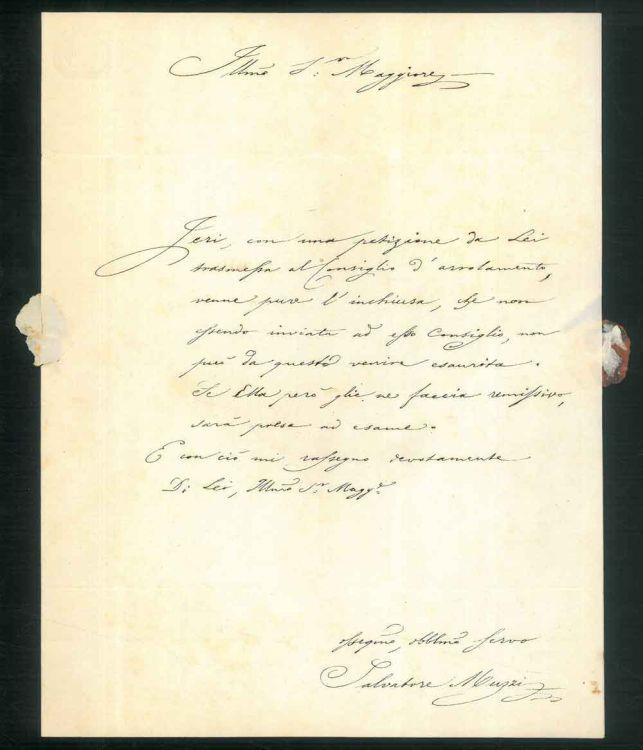 Illmo Sr. Maggiore
Jeri, con una petizione da Lei
trasmessa al Consiglio d'arrolamento,
venne pure l'inchiusa, che non
essendo inviata ad esso Consiglio, non
può da questo venire esaurita.
Se Ella però glie ne faccia remissivo,
sarà presa ad esame.
E con ciò mi rassegno devotamente
Di Lei, Illmo Sr. Maggre.
ossequmo, obblmo servo
Salvatore Muzzi